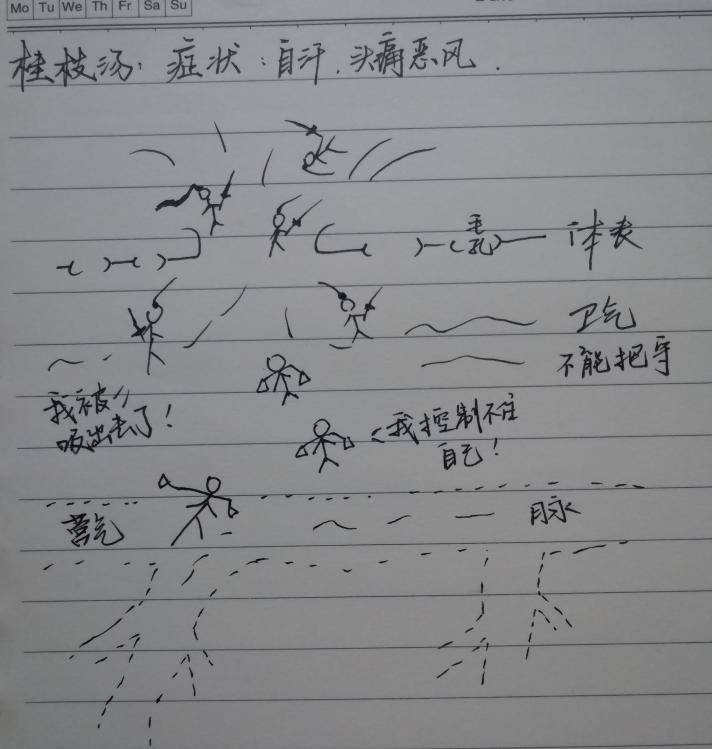 Mo Tu We Th Fr Sa Su
桂枝汤：症状：自汗、头痛恶风.
毛孔
体表
卫气
不能把守
我被
吸出去了！
我控制不住
自己！
营气
脉